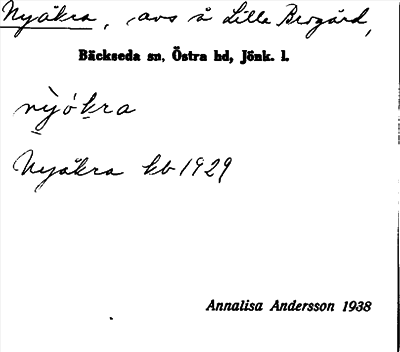 Nyåkra, avs å Lilla Bergård,
Bäckseda sn, Östra hd, Jönk. l.
nỳókra
Nyåkra kb 1929
Annalisa Andersson 1938